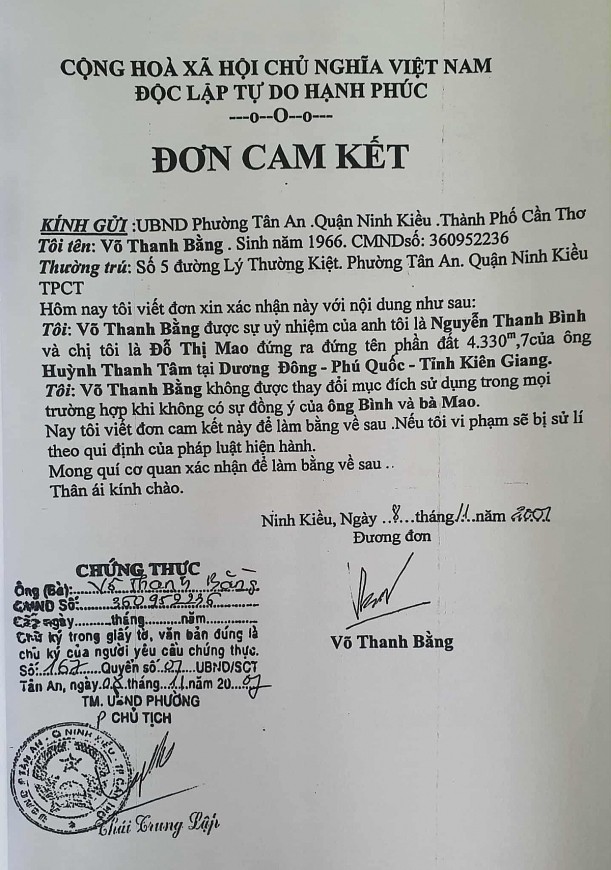 CỘNG HOÀ XÃ HỘI CHỦ NGHĨA VIỆT NAM
ĐỘC LẬP TỰ DO HẠNH PHÚC
---o--O--o---
ĐƠN CAM KẾT
KÍNH GỬI :UBND Phường Tân An .Quận Ninh Kiều .Thành Phố Cần Thơ
Tôi tên: Võ Thanh Bằng . Sinh năm 1966. CMNDsố: 360952236
Thường trú: Số 5 đường Lý Thường Kiệt. Phường Tân An. Quận Ninh Kiều
TPCT
Hôm nay tôi viết đơn xin xác nhận này với nội dung như sau:
Tôi: Võ Thanh Bằng được sự uỷ nhiệm của anh tôi là Nguyễn Thanh Bình
và chị tôi là Đỗ Thị Mao đứng ra đứng tên phần đất 4.330m,7của ông
Huỳnh Thanh Tâm tại Dương Đông - Phú Quốc - Tỉnh Kiên Giang.
Tôi: Võ Thanh Bằng không được thay đổi mục đích sử dụng trong mọi
trường hợp khi không có sự đồng ý của ông Bình và bà Mao.
Nay tôi viết đơn cam kết này để làm bằng về sau .Nếu tôi vi phạm sẽ bị sử lí
theo qui định của pháp luật hiện hành.
Mong quí cơ quan xác nhận để làm bằng về sau ..
Thân ái kính chào.
Ninh Kiều, Ngày ..8...tháng11.năm 2007
Đương đơn
Võ Thanh Bằng
CHỨNG THỰC
Ông (Bà):......Võ Thanh Bằng
CMND Số:......360952236
Cấp ngày..........tháng.........năm............
Chữ ký trong giấy tờ, văn bản đúng là
chữ ký của người yêu cầu chứng thực.
Số:.167.....Quyển số.01...UBND/SCT
Tân An, ngày.08.tháng.11.năm 20..07
TM. UBND PHƯỜNG
P CHỦ TỊCH
Thái Trung Lập